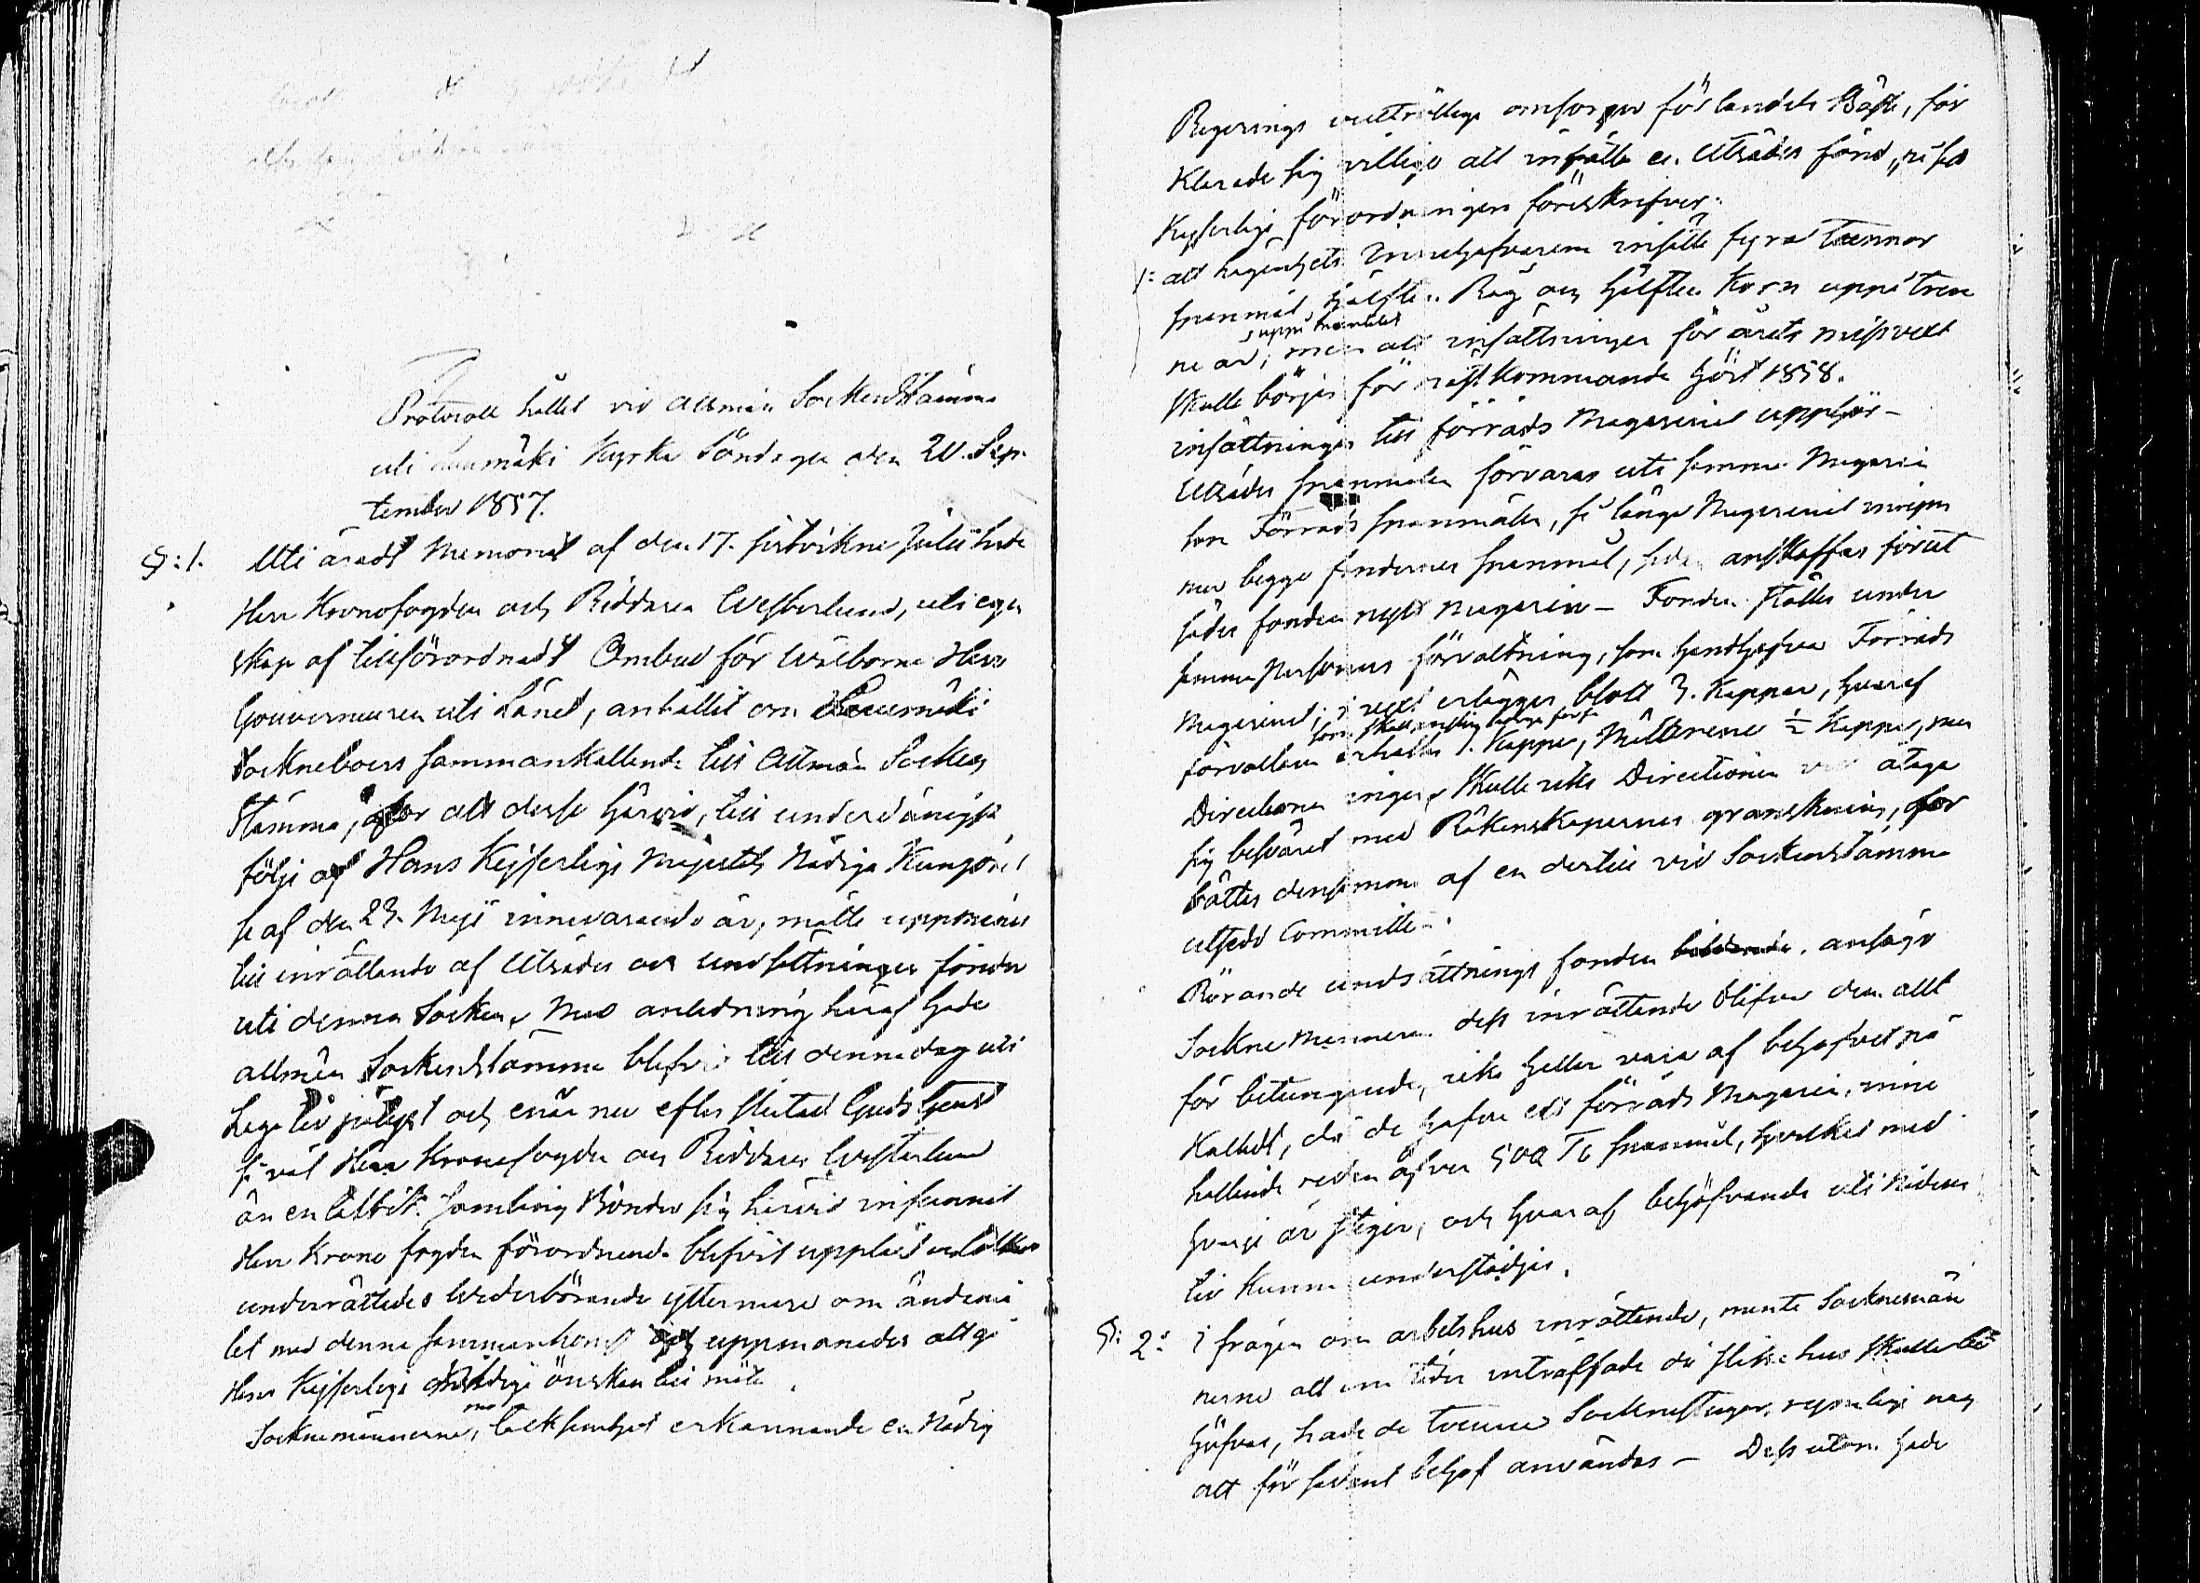 Protocoll hållet vid allmän Sockenstämma
uti Laumäki Kyrka Söndagen den 20. Sep-
tember 1857.
§: 1. Uti Memorial af den 17. sistvikne Julii hade
Herr Kronofogden och Riddaren Westerlund, uti egen
skap af tillförordnadt Ombud för Wälborne Herr
Gouverneuren uti Länet, anhållit om
Sockneboers sammankallande till Allmän Socken
Stämma, för att desse härvid, till underdånigst
följe af Hans Kejserliga Majestäts Nådiga Kungörel
se af den 23. Maji innevarande år, måtte uppmanas
till inrättande af Utsädes och undsättnings fonder
uti denna Socken. Med anledning häraf hade
allmän Sockenstämma blifvit till denna dag uti
Laga tid pålyst och enär nu efter slutad Gudstjenst
så väl Herr Kronofogden och Riddaren Westerlund
än en Bönder sig härvid infunnit
Herr Krono fogden förordnande blifvit uppläst
underrättades wederbörande yttermera om ändamå
let med denna sammankomst och uppmanades att gå
Hans Kejserliga Nådiga önskan till möte.
Socknemännerne, med tacksamhet erkännande en Nådig
Regerings omsorger för landets Bästa, för
klarade sig villige att inrätta en Utsädes fond,
Kejserliga förordningen föreskrifver:
/: att hägenhets Innehafvarene insätta fyra Tunnor
spanmål, hälften Råg och hälften Korn uppå trenne
ne år, men att insättningen för årets missvext
skulle börjas för nästkommande höst 1858.
insättningen till förråds Magasinet upphör –
Utsädes spanmålen förvaras uti samma Magasin
som Förråds spanmålen, så länge Magasinet
mer begge fondernes spanmål, anskaffas för ut
sädes fonden nytt magasin – Fonden ställes under
samma Personers förvaltning, som handhafva Förråds
Magasinet, i erlägges blott 3. Kappar, hvaraf
förvaltaren erhåller 1. Kappe, Mätterne ½ Kappe, men
Directionen ingen. Skulle Directionen åtaga
sig besväret med Räkenskapernes granskning, för
rättes densamma af en dertill vid Sockenstämma
utsedd Committé.
Rörande undsättnings fonden ansågo
Socknemännerne dess inrättande blifva dem allt
för betungande, icke heller vara af behofvet på
kalladt, då de hafva ett förråds Magasin, inne
hållande redan öfver 500 Tr spanmål, hvilket med
hvarje år stiger, och hvaraf behöfvande uti Nödens
tid kunna understödjas.
§: 2: I frågan om arbetshus inrättande, mente Socknemän
nerne att om tider inträffade då slika hus skulle be
höfvas, hade de tvenne Socknestugor, nog
att för sådant behof användas – Dess utom hade